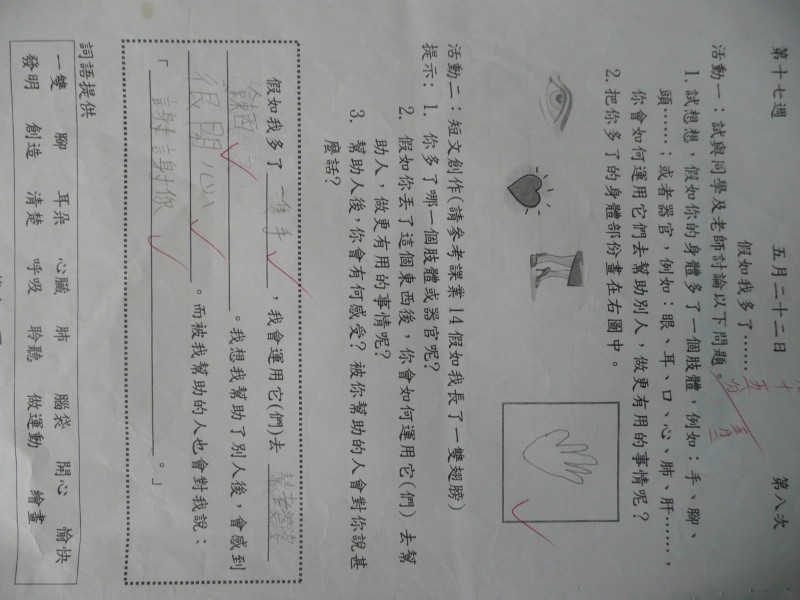 第十七週　五月二十二日　第八次
假如我多了……
活動一：試與同學及老師討論以下問題。
1. 試想想，假如你的身體多了一個肢體，例如：手、腳、
頭……；或者器官，例如：眼、耳、口、心、肺、肝……，
你會如何運用它們去幫助別人，做更有用的事情呢？
2. 把你多了的身體部份畫在右圖中。
活動二：短文創作(請參考課業 14 假如我長了一雙翅膀)
提示： 1. 你多了哪一個肢體或器官呢？
2. 假如你丟了這個東西後，你會如何運用它(們) 去幫
助人，做更有用的事情呢？
3. 幫助人後，你會有何感受？被你幫助的人會對你說甚
麼話？
假如我多了 一隻手 ，我會運用它(們)去
。我想我幫助了別人後，會感到
很開心 。而被我幫助的人也會對我說：
「 謝謝你 。」
詞語提供
一雙　腳　耳朵　心臟　肺　腦袋　開心　愉快
發明　創造　清楚　呼吸　聆聽　做運動　繪畫